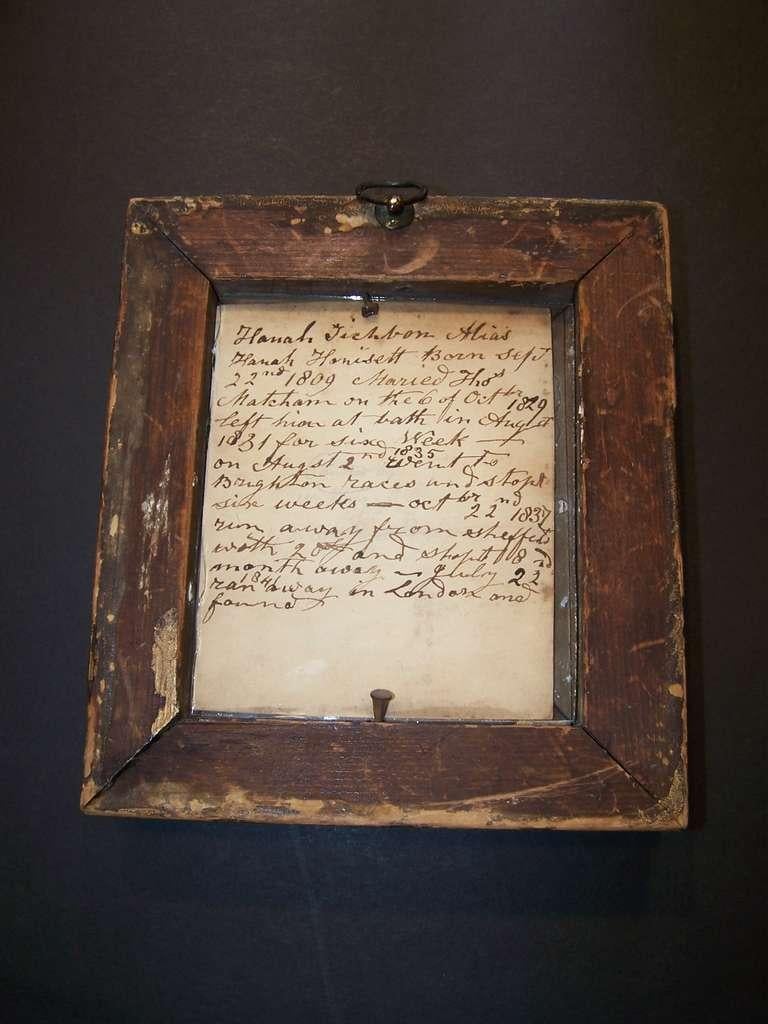 Hanah Tichbon Alias
Hanah Honisett Born Sept
22nd 1809 Maried Thos
Matcham on the 6 of Octbr 1829
left him at bath in Augst
1831 for six Week —
on Augst 2nd 1835 Went to
Brighton races and stopt
six weeks — octbr 22nd 1837
run away from sheffeild
with and stopt 8
month away — July 22nd
ran 1841 away in London and
found